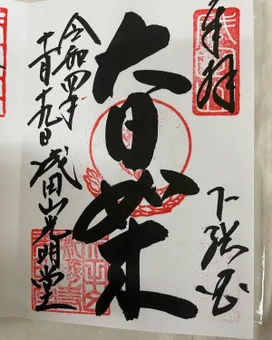 奉拝
下総国
大日如来
令和四年
十一月十九日 成田山光明堂